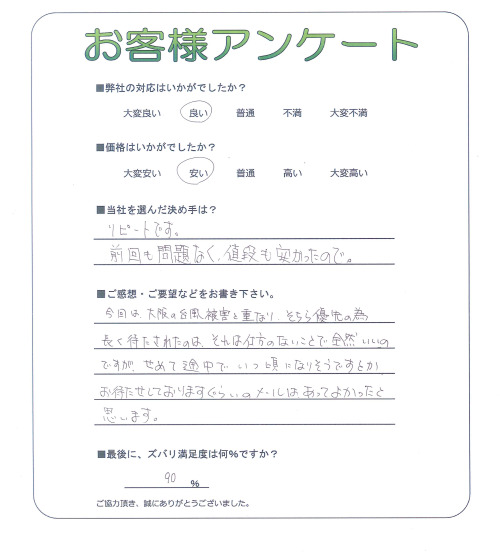 お客様アンケート
■弊社の対応はいかがでしたか？
大変良い 良い 普通 不満 大変不満
■価格はいかがでしたか？
大変安い 安い 普通 高い 大変高い
■当社を選んだ決め手は？
リピートです。
前回も問題なく、値段も安かったので。
■ご感想・ご要望などをお書き下さい。
今回は、大阪の台風被害と重なり、そちら優先の為
長く待たされたのは、それは仕方のないことで全然いいの
ですが、せめて途中で いつ頃になりそうですとか
お待たせしておりますぐらいのメールはあってよかったと
思います。
■最後に、ズバリ満足度は何％ですか？
90 %
ご協力頂き、誠にありがとうございました。